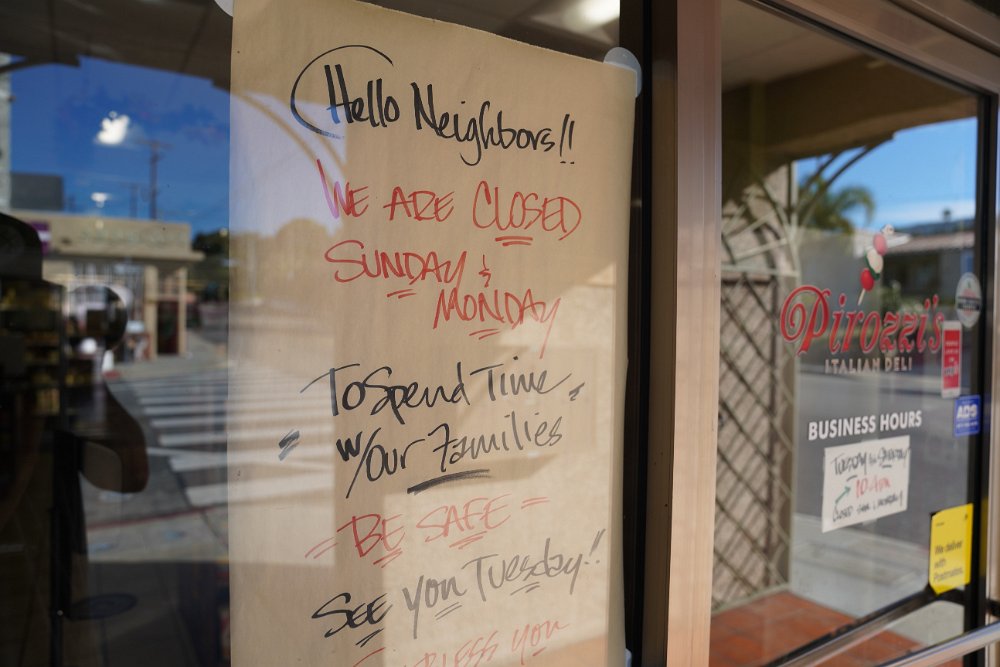 Hello Neighbors!!
WE ARE CLOSED
SUNDAY &
MONDAY
To Spend Time
w/Our Families
BE SAFE
SEE YOU TUESDAY!!
BLESS YOU
Pirozzi's
ITALIAN DELI
BUSINESS HOURS
10-4PM
ADS
We deliver
with
Postmates.